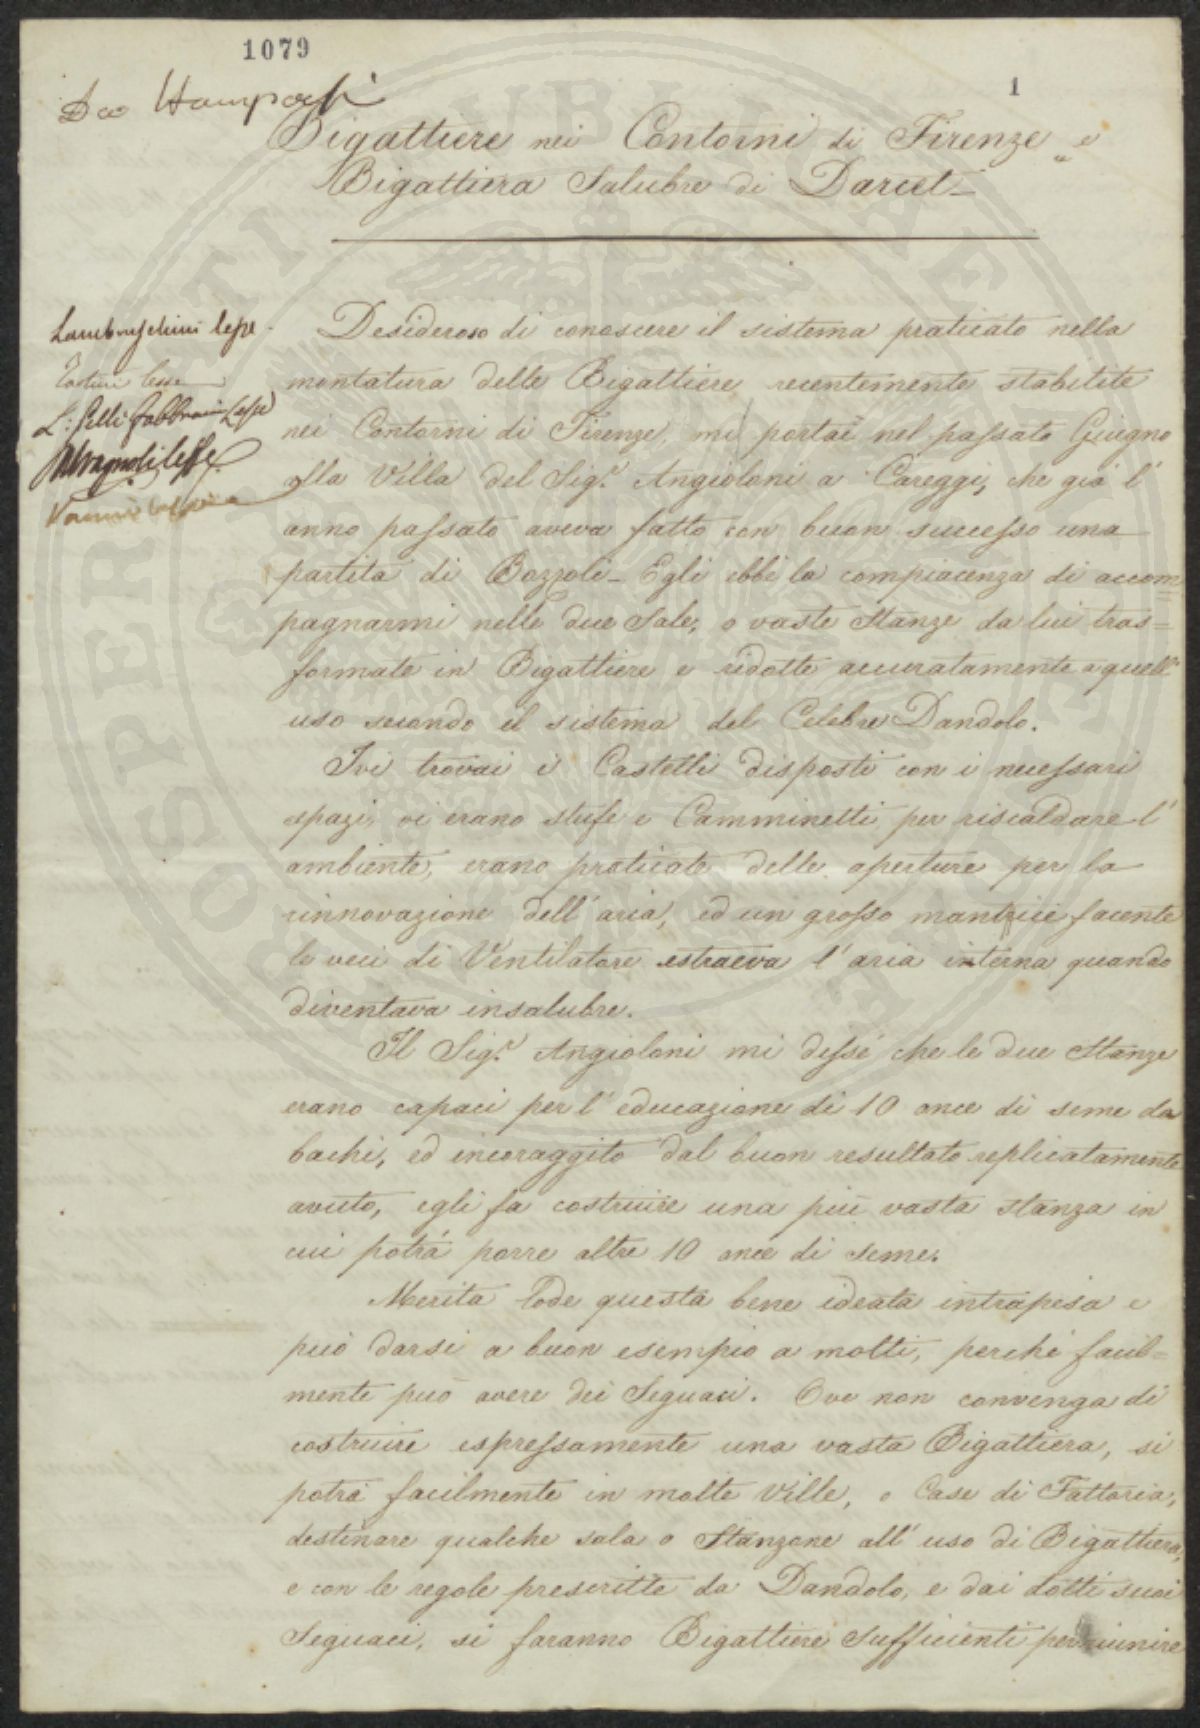 1079
1
Da Stamparsi
Bigattiere nei Contorni di Firenze e
Bigattiera Salubre di Darcet_
Lambruschini lesse
L: Pelli Fabbroni Lesse
Desideroso di conoscere il sistema praticato nella
montatura delle Bigattiere recentemente stabilite
nei Contorni di Firenze, mi portai nel passato Giugno
alla Villa del Sig.r Angioloni a Careggi, che già l'
anno passato aveva fatto con buon successo una
partita di Bozzoli_ Egli ebbe la compiacenza di accom=
pagnarmi nelle due Sale, o vaste Stanze da lui tras=
formate in Bigattiere e ridotte accuratamente a quell'
uso secondo il sistema del Celebre Dandolo.
Ivi trovai i Castelli disposti con i necessari
spazi, vi erano stufe e Camminetti per riscaldare l'
ambiente, erano praticate delle aperture per la
rinnovazione dell'aria, ed un grosso mantice facente
le veci di Ventilatore estraeva l'aria interna quando
diventava insalubre.
Il Sig.r Angioloni mi disse che le due Stanze
erano capaci per l'educazione di 10 once di seme da
bachi, ed incoraggito dal buon resultato replicatamente
avuto, egli fa costruire una più vasta stanza in
cui potrà porre altre 10 once di seme.
Merita lode questa bene ideata intrapesa e
può darsi a buon esempio a molti, perchè facil=
mente può avere dei Seguaci. Ove non convenga di
costruire espressamente una vasta Bigattiera, si
potrà facilmente in molte Ville, o Case di Fattoria,
destinare qualche sala o Stanzone all'uso di Bigattiera,
e con le regole prescritte da Dandolo, e dai dotti suoi
Seguaci, si faranno Bigattiere sufficienti per riunire